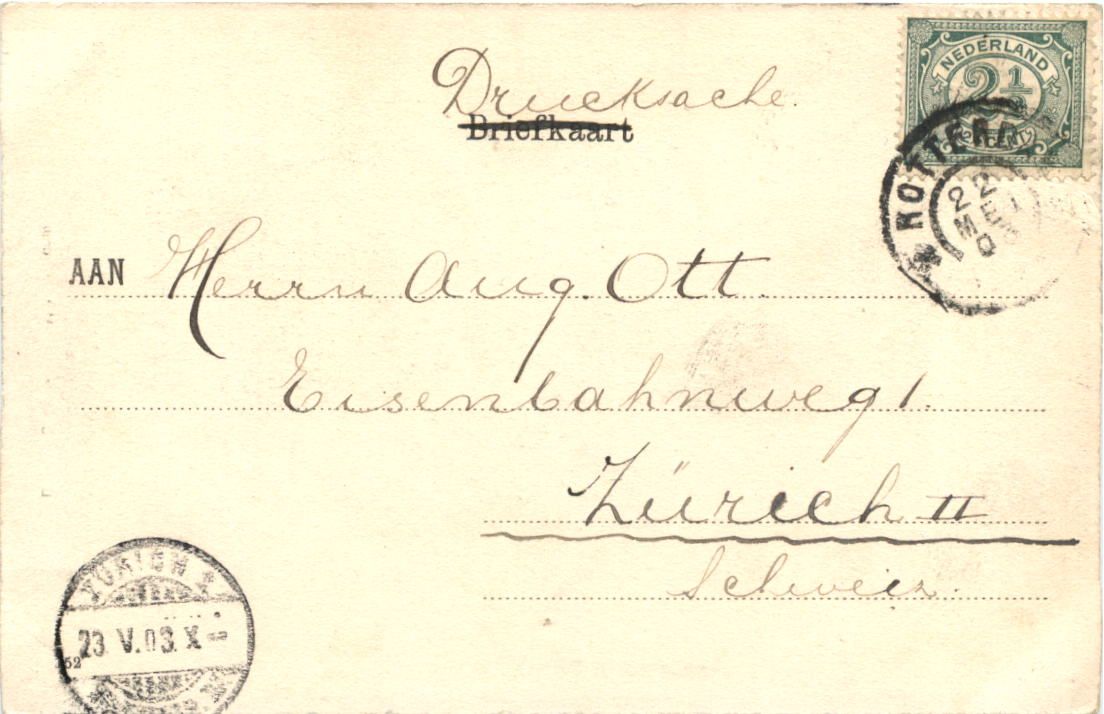 Drucksache.
Briefkaart
NEDERLAND
2 1/2
CENT
ROTTERD
22
MEI
03
AAN Herrn Aug. Ott.
Eisenbahnweg 1.
Zürich II
Schweiz.
ZÜRICH 2
23. V. 03. X